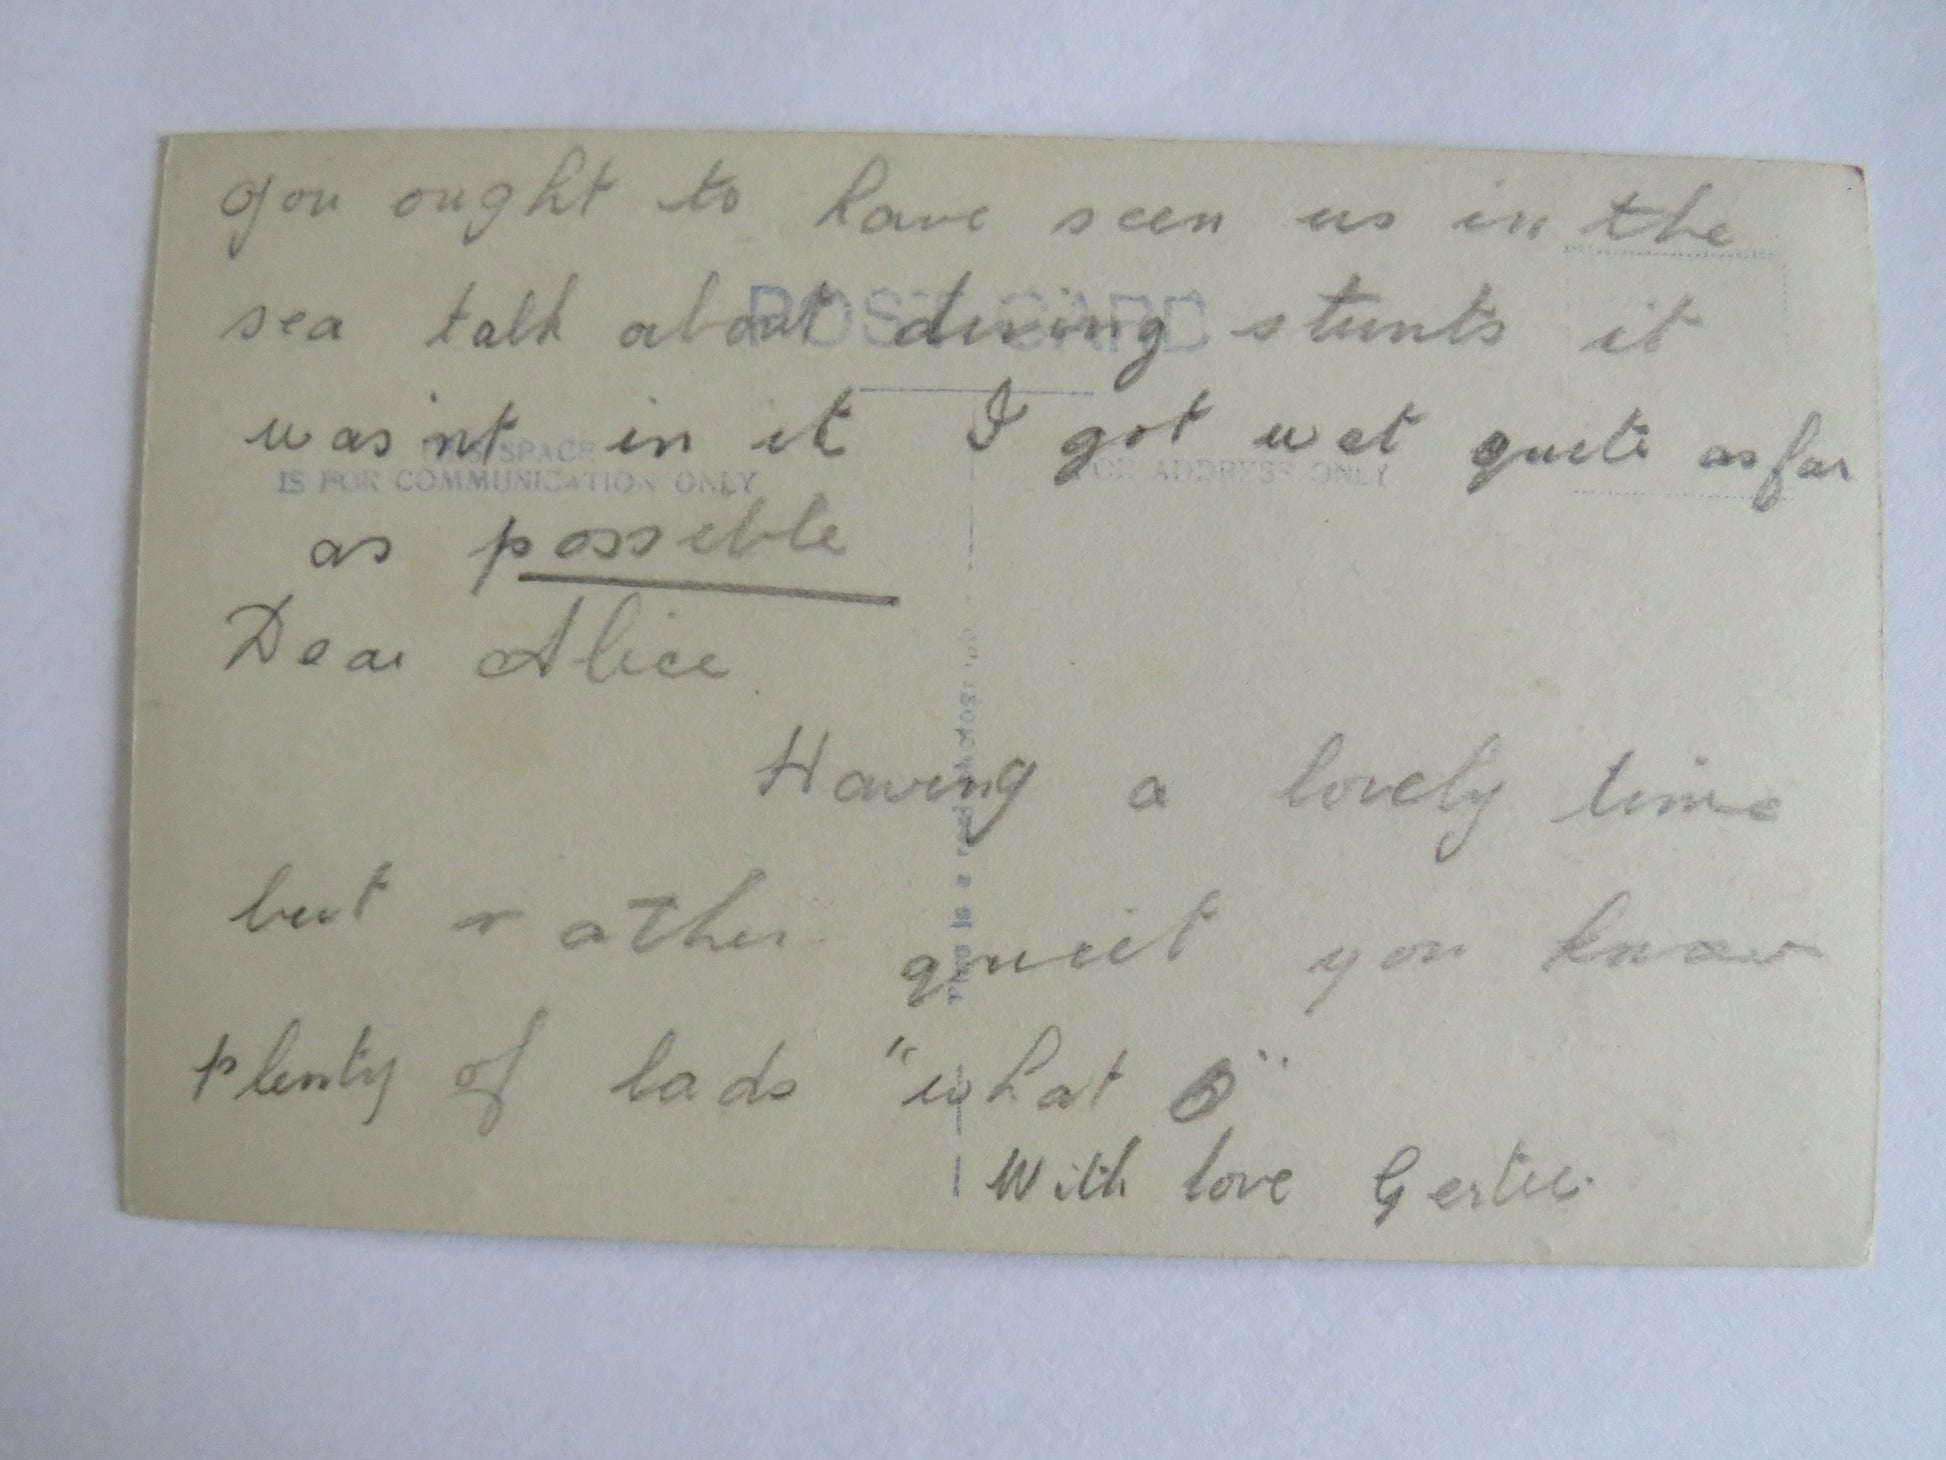 you ought to have seen us in the
sea talk about diving stunts it
was'nt in it I got wet quite as far
as possible
Dear Alice
Having a lovely time
but rather quiet you know
plenty of lads "what O"
With love Gertie.
POST CARD
THIS SPACE
IS FOR COMMUNICATION ONLY
FOR ADDRESS ONLY
This is a real photograph